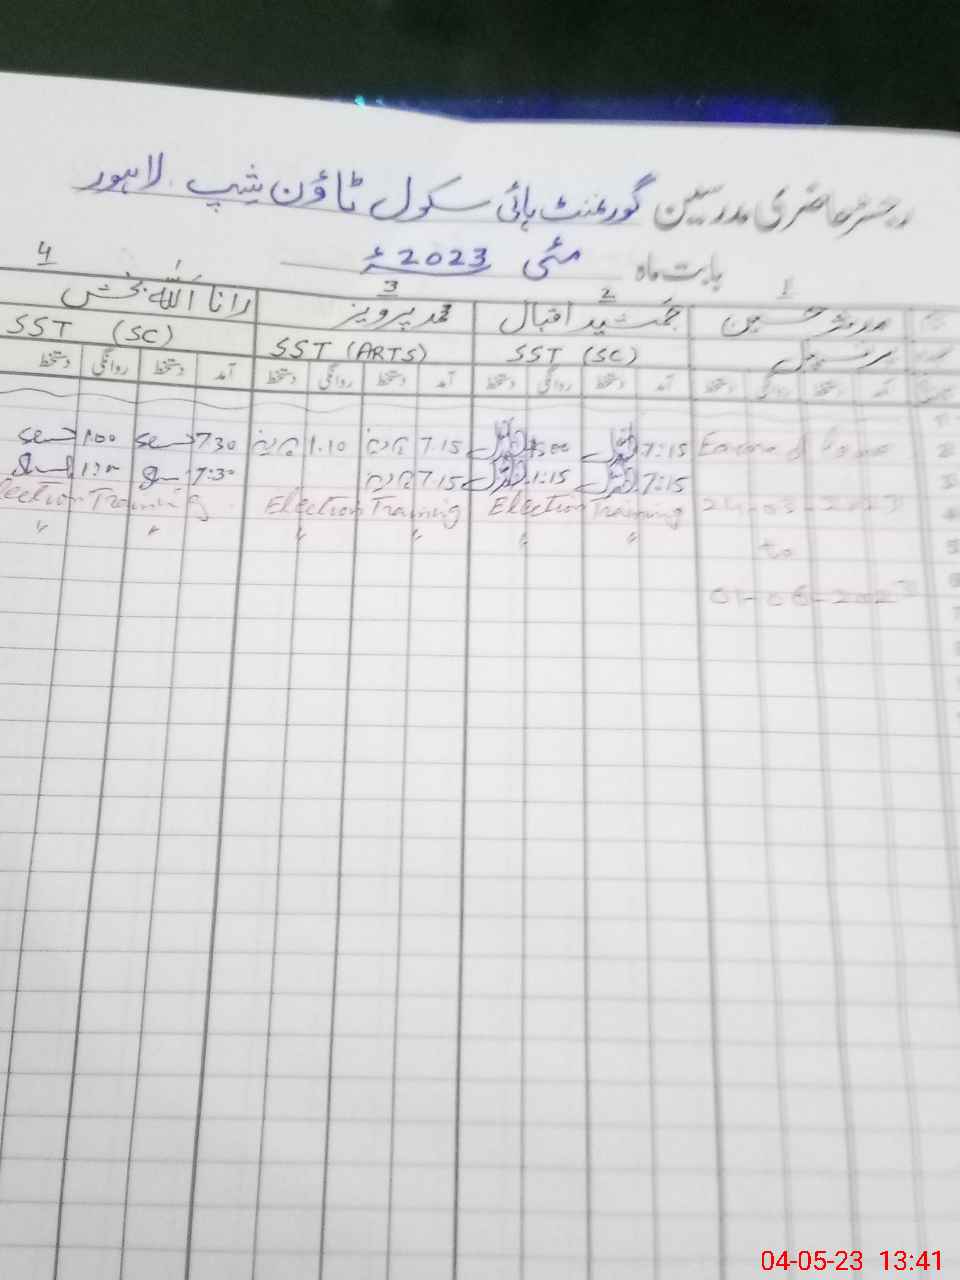 رجسٹر حاضری مدرسین گورنمنٹ ہائی سکول ٹاؤن شپ لاہور
بابت ماہ مئی 2023ء
1 2 3 4
مدثر حسین جمشید اقبال محمد پرویز رانا اللہ بخش
پرنسپل SST (SC) SST (ARTS) SST (SC)
آمد دستخط روانگی دستخط آمد دستخط روانگی دستخط آمد دستخط روانگی دستخط آمد دستخط روانگی دستخط
7:15 7.15 1.10 7.30 1.00
7:15 1:15 7.15 7:30
24-05-2023 Election Training Election Training Election Training
to " " " " " "
01-06-2023
04-05-23 13:41